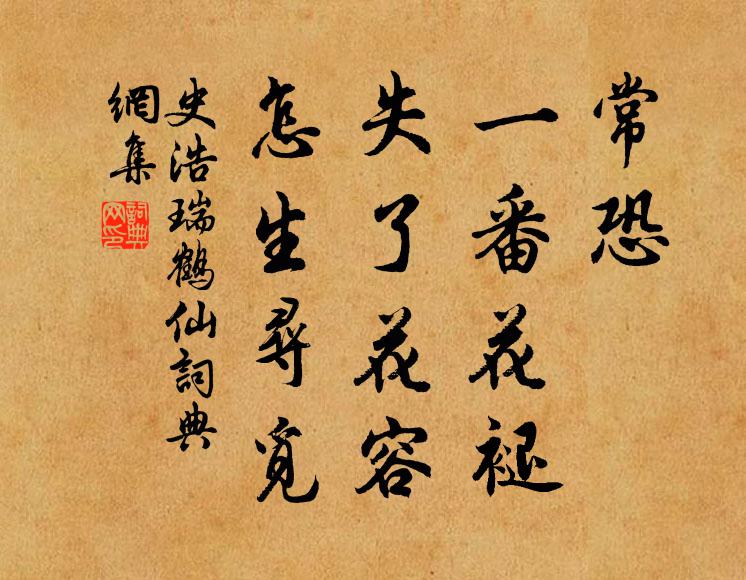 常恐
一番花褪
失了花容
怎生尋覓
史浩瑞鶴仙詞典
網集
詞典
网印